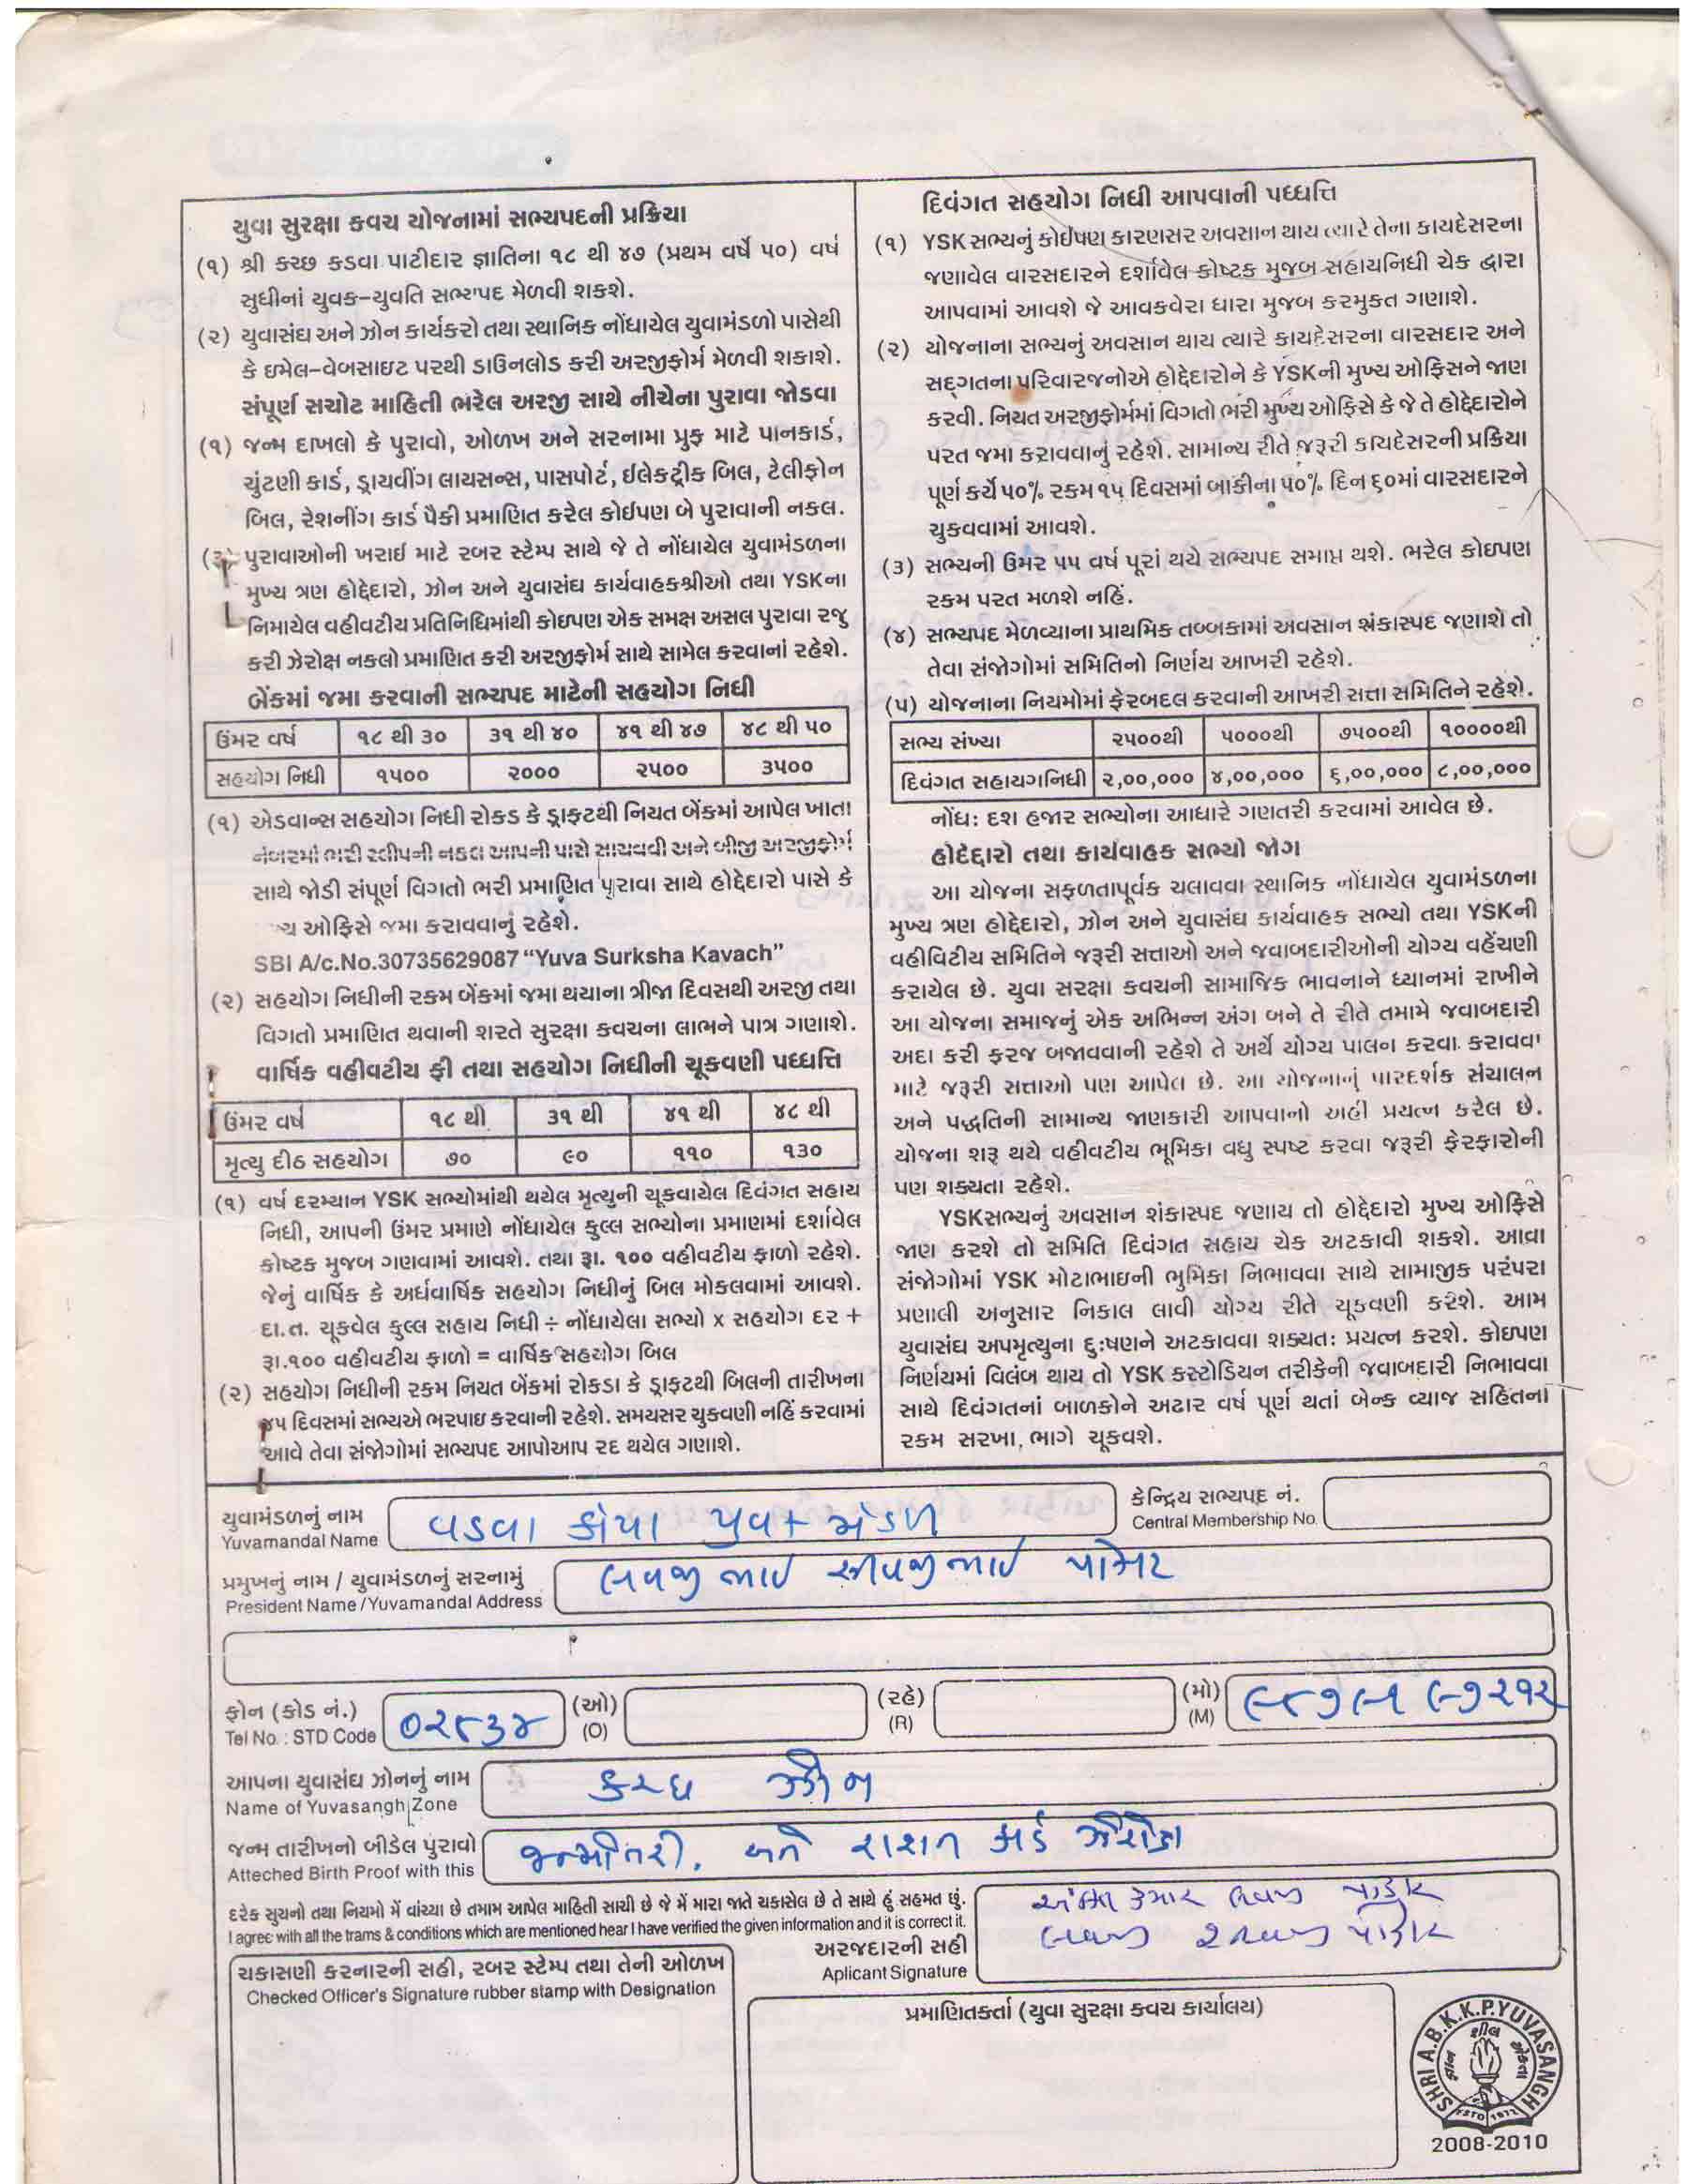 યુવા સુરક્ષા કવચ યોજનામાં સભ્યપદની પ્રક્રિયા
(૧) શ્રી કચ્છ કડવા પાટીદાર જ્ઞાતિના ૧૮ થી ૪૭ (પ્રથમ વર્ષે ૫૦) વર્ષ
સુધીનાં યુવક-યુવતિ સભ્યપદ મેળવી શકશે.
(૨) યુવાસંઘ અને ઝોન કાર્યકરો તથા સ્થાનિક નોંધાયેલ યુવામંડળો પાસેથી
કે ઇમેલ-વેબસાઇટ પરથી ડાઉનલોડ કરી અરજીફોર્મ મેળવી શકાશે.
સંપૂર્ણ સચોટ માહિતી ભરેલ અરજી સાથે નીચેના પુરાવા જોડવા
(૧) જન્મ દાખલો કે પુરાવો, ઓળખ અને સરનામા પ્રુફ માટે પાનકાર્ડ,
ચુંટણી કાર્ડ, ડ્રાયવીંગ લાયસન્સ, પાસપોર્ટ, ઈલેક્ટ્રીક બિલ, ટેલીફોન
બિલ, રેશનીંગ કાર્ડ પૈકી પ્રમાણિત કરેલ કોઈપણ બે પુરાવાની નકલ.
પુરાવાઓની ખરાઈ માટે રબર સ્ટેમ્પ સાથે જે તે નોંધાયેલ યુવામંડળના
મુખ્ય ત્રણ હોદ્દેદારો, ઝોન અને યુવાસંઘ કાર્યવાહકશ્રીઓ તથા YSKના
નિમાયેલ વહીવટીય પ્રતિનિધિમાંથી કોઇપણ એક સમક્ષ અસલ પુરાવા રજુ
કરી ઝેરોક્ષ નકલો પ્રમાણિત કરી અરજીફોર્મ સાથે સામેલ કરવાનાં રહેશે.
બેંકમાં જમા કરવાની સભ્યપદ માટેની સહયોગ નિધી
ઉંમર વર્ષ ૧૮ થી ૩૦ ૩૧ થી ૪૦ ૪૧ થી ૪૭ ૪૮ થી ૫૦
સહયોગ નિધી ૧૫૦૦ ૨૦૦૦ ૨૫૦૦ ૩૫૦૦
(૧) એડવાન્સ સહયોગ નિધી રોકડ કે ડ્રાફ્ટથી નિયત બેંકમાં આપેલ ખાતા
નંબરમાં ભરી સ્લીપની નકલ આપની પાસે સાચવવી અને બીજી અરજીફોર્મ
સાથે જોડી સંપૂર્ણ વિગતો ભરી પ્રમાણિત પુરાવા સાથે હોદ્દેદારો પાસે કે
ઓફિસે જમા કરાવવાનું રહેશે.
SBI A/c.No.30735629087 “Yuva Surksha Kavach”
(૨) સહયોગ નિધીની રકમ બેંકમાં જમા થયાના ત્રીજા દિવસથી અરજી તથા
વિગતો પ્રમાણિત થવાની શરતે સુરક્ષા કવચના લાભને પાત્ર ગણાશે.
વાર્ષિક વહીવટીય ફી તથા સહયોગ નિધીની ચૂકવણી પધ્ધતિ
ઉંમર વર્ષ ૧૮ થી ૩૧ થી ૪૧ થી ૪૮ થી
મૃત્યુ દીઠ સહયોગ ૭૦ ૯૦ ૧૧૦ ૧૩૦
(૧) વર્ષ દરમ્યાન YSK સભ્યોમાંથી થયેલ મૃત્યુની ચૂકવાયેલ દિવંગત સહાય
નિધી, આપની ઉંમર પ્રમાણે નોંધાયેલ કુલ્લ સભ્યોના પ્રમાણમાં દર્શાવેલ
કોષ્ટક મુજબ ગણવામાં આવશે. તથા રૂા. ૧૦૦ વહીવટીય ફાળો રહેશે.
જેનું વાર્ષિક કે અર્ધવાર્ષિક સહયોગ નિધીનું બિલ મોકલવામાં આવશે.
દા.ત. ચૂકવેલ કુલ્લ સહાય નિધી ÷ નોંધાયેલા સભ્યો x સહયોગ દર +
રૂા.૧૦૦ વહીવટીય ફાળો = વાર્ષિક સહયોગ બિલ
(૨) સહયોગ નિધીની રકમ નિયત બેંકમાં રોકડા કે ડ્રાફટથી બિલની તારીખના
૪૫ દિવસમાં સભ્યએ ભરપાઇ કરવાની રહેશે. સમયસર ચુકવણી નહિં કરવામાં
આવે તેવા સંજોગોમાં સભ્યપદ આપોઆપ રદ થયેલ ગણાશે.
દિવંગત સહયોગ નિધી આપવાની પધ્ધત્તિ
(૧) YSK સભ્યનું કોઈપણ કારણસર અવસાન થાય ત્યારે તેના કાયદેસરના
જણાવેલ વારસદારને દર્શાવેલ કોષ્ટક મુજબ સહાયનિધી ચેક દ્વારા
આપવામાં આવશે જે આવકવેરા ધારા મુજબ કરમુકત ગણાશે.
(૨) યોજનાના સભ્યનું અવસાન થાય ત્યારે કાયદેસરના વારસદાર અને
સદ્‌ગતના પરિવારજનોએ હોદ્દેદારોને કે YSKની મુખ્ય ઓફિસને જાણ
કરવી. નિયત અરજીફોર્મમાં વિગતો ભરી મુખ્ય ઓફિસે કે જે તે હોદ્દેદારોને
પરત જમા કરાવવાનું રહેશે. સામાન્ય રીતે જરૂરી કાયદેસરની પ્રક્રિયા
પૂર્ણ કર્યે ૫૦% રકમ ૧૫ દિવસમાં બાકીના ૫૦% દિન ૬૦માં વારસદારને
ચુકવવામાં આવશે.
(૩) સભ્યની ઉંમર ૫૫ વર્ષ પૂરાં થયે સભ્યપદ સમાપ્ત થશે. ભરેલ કોઇપણ
રકમ પરત મળશે નહિં.
(૪) સભ્યપદ મેળવ્યાના પ્રાથમિક તબ્બકામાં અવસાન શંકાસ્પદ જણાશે તો
તેવા સંજોગોમાં સમિતિનો નિર્ણય આખરી રહેશે.
(૫) યોજનાના નિયમોમાં ફેરબદલ કરવાની આખરી સત્તા સમિતિને રહેશે.
સભ્ય સંખ્યા ૨૫૦૦થી ૫૦૦૦થી ૭૫૦૦થી ૧૦૦૦૦થી
દિવંગત સહાયગનિધી ૨,૦૦,૦૦૦ ૪,૦૦,૦૦૦ ૬,૦૦,૦૦૦ ૮,૦૦,૦૦૦
નોંધ: દશ હજાર સભ્યોના આધારે ગણતરી કરવામાં આવેલ છે.
હોદેદ્દારો તથા કાર્યવાહક સભ્યો જોગ
આ યોજના સફળતાપૂર્વક ચલાવવા સ્થાનિક નોંધાયેલ યુવામંડળના
મુખ્ય ત્રણ હોદ્દેદારો, ઝોન અને યુવાસંઘ કાર્યવાહક સભ્યો તથા YSKની
વહીવિટીય સમિતિને જરૂરી સત્તાઓ અને જવાબદારીઓની યોગ્ય વહેંચણી
કરાયેલ છે. યુવા સરક્ષા કવચની સામાજિક ભાવનાને ધ્યાનમાં રાખીને
આ યોજના સમાજનું એક અભિન્ન અંગ બને તે રીતે તમામે જવાબદારી
અદા કરી ફરજ બજાવવાની રહેશે તે અર્થે યોગ્ય પાલન કરવા કરાવવા
માટે જરૂરી સત્તાઓ પણ આપેલ છે. આ યોજનાનું પારદર્શક સંચાલન
અને પદ્ધતિની સામાન્ય જાણકારી આપવાનો અહીં પ્રયત્ન કરેલ છે.
યોજના શરૂ થયે વહીવટીય ભૂમિકા વધુ સ્પષ્ટ કરવા જરૂરી ફેરફારોની
પણ શક્યતા રહેશે.
YSKસભ્યનું અવસાન શંકાસ્પદ જણાય તો હોદ્દેદારો મુખ્ય ઓફિસે
જાણ કરશે તો સમિતિ દિવંગત સહાય ચેક અટકાવી શકશે. આવા
સંજોગોમાં YSK મોટાભાઇની ભુમિકા નિભાવવા સાથે સામાજીક પરંપરા
પ્રણાલી અનુસાર નિકાલ લાવી યોગ્ય રીતે ચૂકવણી કરશે. આમ
યુવાસંઘ અપમૃત્યુના દુઃષણને અટકાવવા શક્યતઃ પ્રયત્ન કરશે. કોઇપણ
નિર્ણયમાં વિલંબ થાય તો YSK કસ્ટોડિયન તરીકેની જવાબદારી નિભાવવા
સાથે દિવંગતનાં બાળકોને અઢાર વર્ષ પૂર્ણ થતાં બેન્ક વ્યાજ સહિતના
રકમ સરખા, ભાગે ચૂકવશે.
યુવામંડળનું નામ વડવા કાંયા યુવક મંડળ
Yuvamandal Name
કેન્દ્રિય સભ્યપદ નં.
Central Membership No.
પ્રમુખનું નામ / યુવામંડળનું સરનામું લવજીભાઈ
President Name / Yuvamandal Address
ફોન (કોડ નં.) ૦૨૮૩૪ (ઓ) (રહે) (મો)
Tel No. : STD Code (O) (R) (M)
આપના યુવાસંઘ ઝોનનું નામ કચ્છ ઝોન
Name of Yuvasangh Zone
જન્મ તારીખનો બીડેલ પુરાવો જન્મોતરી. અને રાશન કાર્ડ ઝેરોક્ષ
Atteched Birth Proof with this
દરેક સુચનો તથા નિયમો મેં વાંચ્યા છે તમામ આપેલ માહિતી સાચી છે જે મેં મારા જાતે ચકાસેલ છે તે સાથે હું સહમત છું.
I agree with all the trams & conditions which are mentioned hear I have verified the given information and it is correct it.
અરજદારની સહી
Aplicant Signature
ચકાસણી કરનારની સહી, રબર સ્ટેમ્પ તથા તેની ઓળખ
Checked Officer's Signature rubber stamp with Designation
પ્રમાણિતકર્તા (યુવા સુરક્ષા કવચ કાર્યાલય)
SHRI A.B.K.K.P.YUVASANGH
શીલ
ESTD 1972
2008-2010